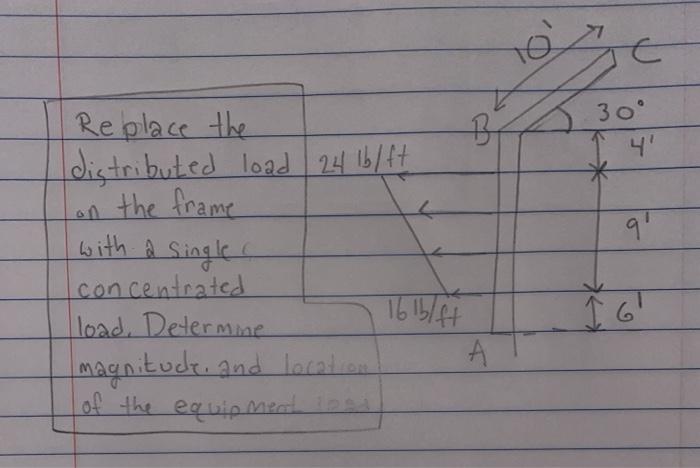 Replace the
distributed load
on the frame
with a single
concentrated
load. Determine
magnitude. and location
of the equipment load
24 lb/ft
16 lb/ft
10'
C
B
30°
4'
9'
6'
A